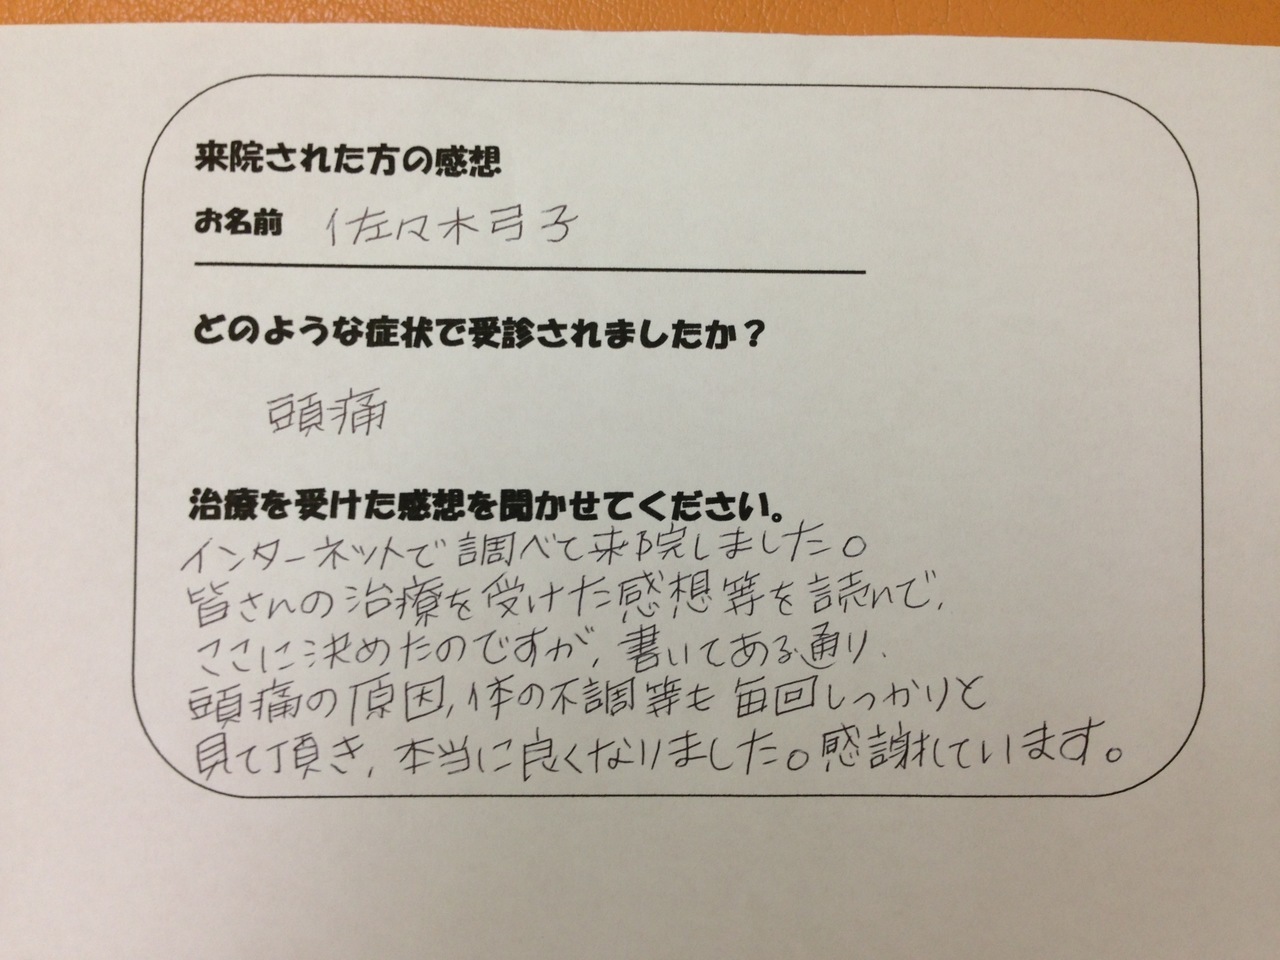 来院された方の感想
お名前 佐々木弓子
どのような症状で受診されましたか？
頭痛
治療を受けた感想を聞かせてください。
インターネットで調べて来院しました。
皆さんの治療を受けた感想等を読んで、
ここに決めたのですが、書いてある通り、
頭痛の原因、体の不調等も毎回しっかりと
見て頂き、本当に良くなりました。感謝しています。